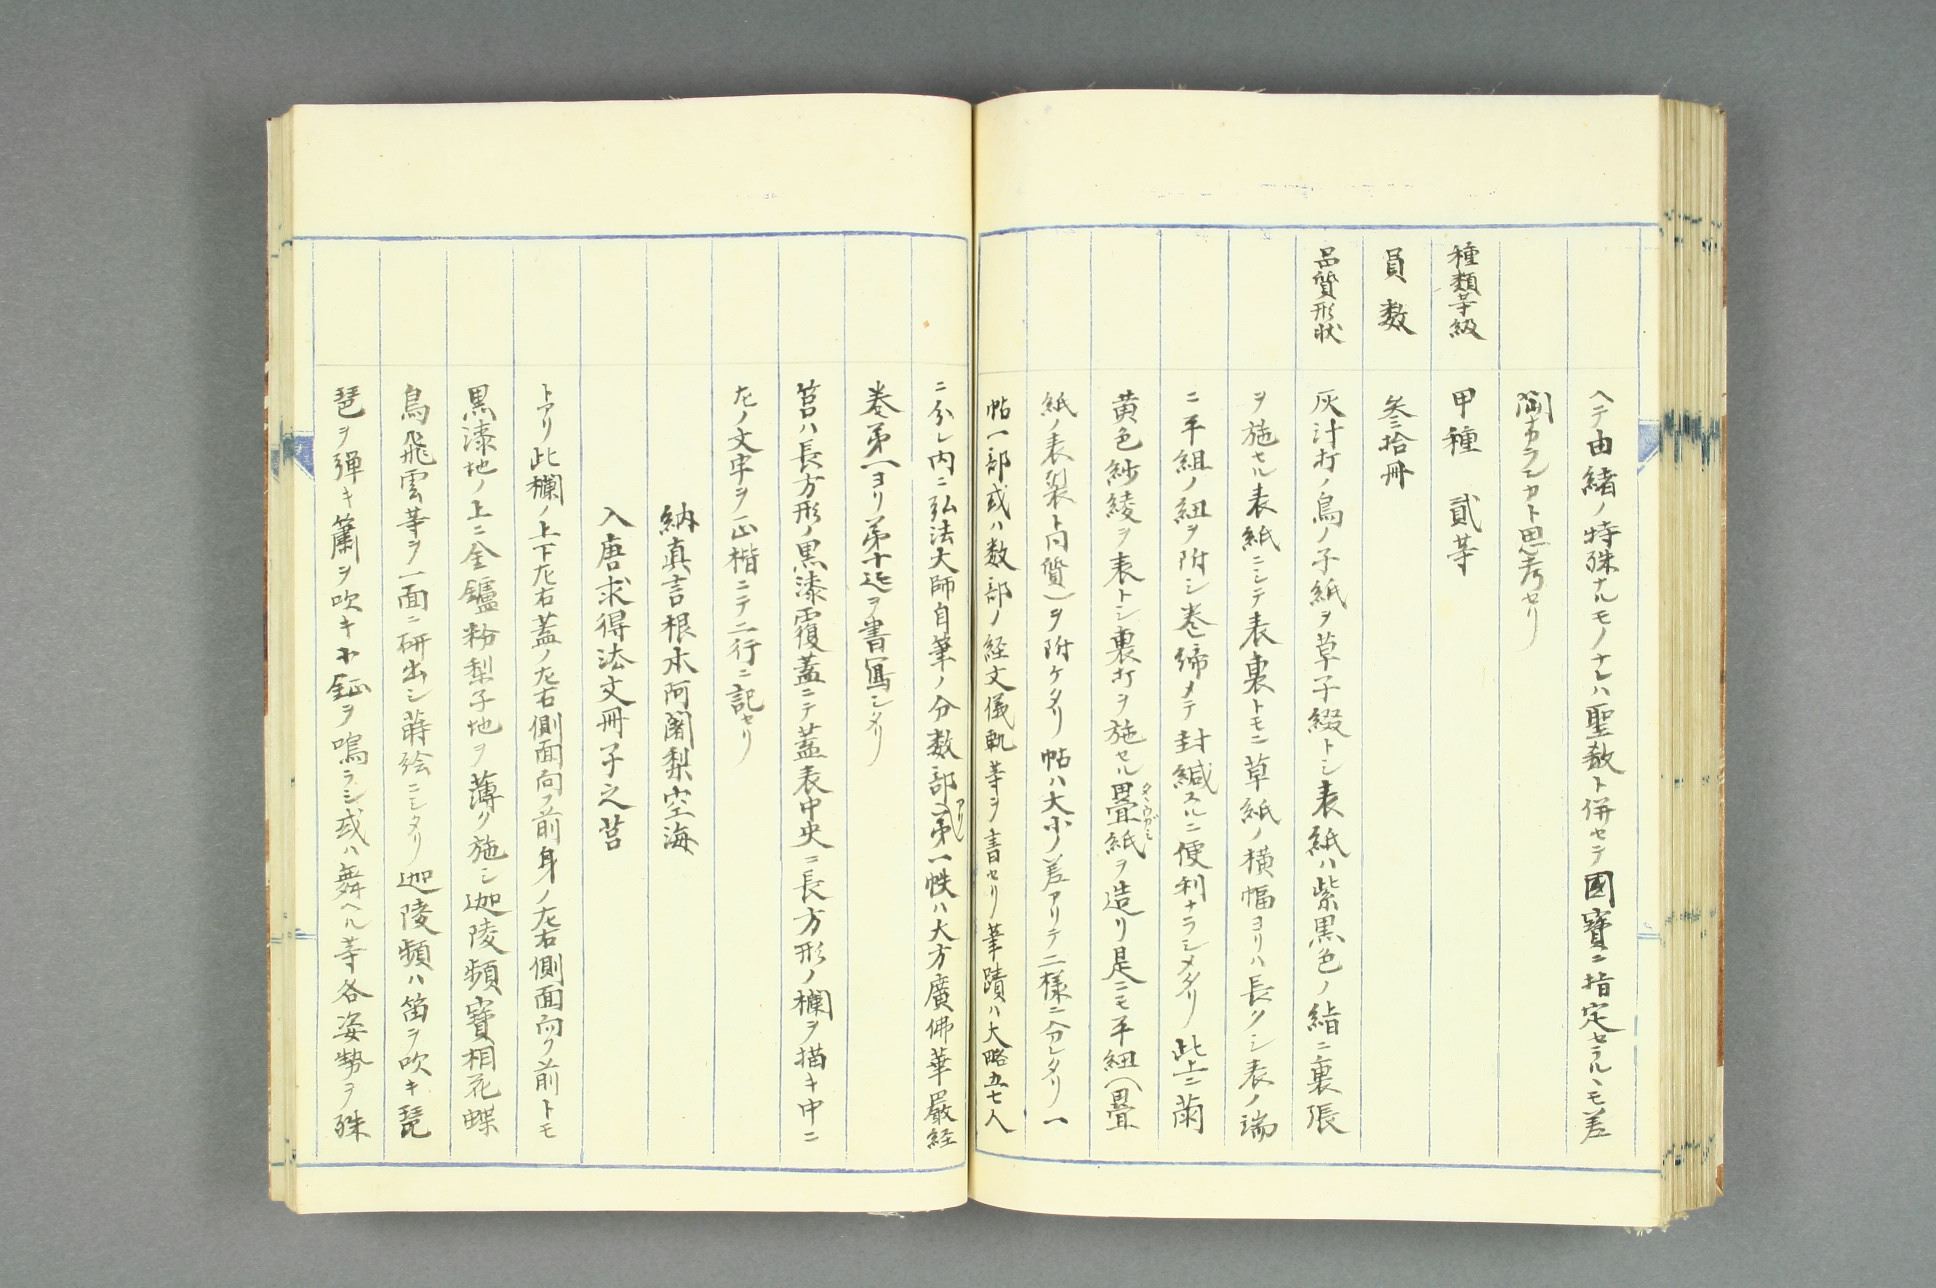 ヘテ由緒ノ特殊ナルモノナレハ聖教ト併セテ國寶ニ指定セラルヽモ差
閊ナカランカト思考セリ
種類等級 甲種 貳等
員数 叁拾冊
品質形状 灰汁打ノ鳥ノ子紙ヲ草子綴トシ表紙ハ紫黒色ノ絹ニ裏張
ヲ施セル表紙ニシテ表裏トモニ草紙ノ横幅ヨリハ長クシ表ノ端
ニ平組ノ紐ヲ附シ巻締メテ封緘スルニ便利ナラシメタリ此上ニ蘭
黄色紗綾ヲ表トシ裏打ヲ施セル畳紙タヽウガミヲ造リ是ニモ平紐(畳
紙ノ表製ト同質)ヲ附ケタリ帖ハ大小ノ差アリテ二様ニ分レタリ一
帖一部或ハ数部ノ経文儀軌等ヲ書セリ筆蹟ハ大略五七人
ニ分レ内ニ弘法大師自筆ノ分数部アリ第一帙ハ大方廣佛華嚴経
巻第一ヨリ第十迄ヲ書寫シタリ
筥ハ長方形ノ黒漆覆蓋ニテ蓋表中央ニ長方形ノ欄ヲ描キ中ニ
左ノ文字ヲ正楷ニテ二行ニ記セリ
納真言根本阿闍梨空海
入唐求得法文冊子之筥
トアリ此欄ノ上下左右蓋ノ左右側面向フ前身ノ左右側面向フ前トモ
黒漆地ノ上ニ金鑢粉梨子地ヲ薄ク施シ迦陵頻寶相花蝶
鳥飛雲等ヲ一面ニ研出シ蒔絵ニシタリ迦陵頻ハ笛ヲ吹キ琵
琶ヲ弾キ簫ヲ吹キ小鉦ヲ鳴ラシ或ハ舞ヘル等各姿勢ヲ殊